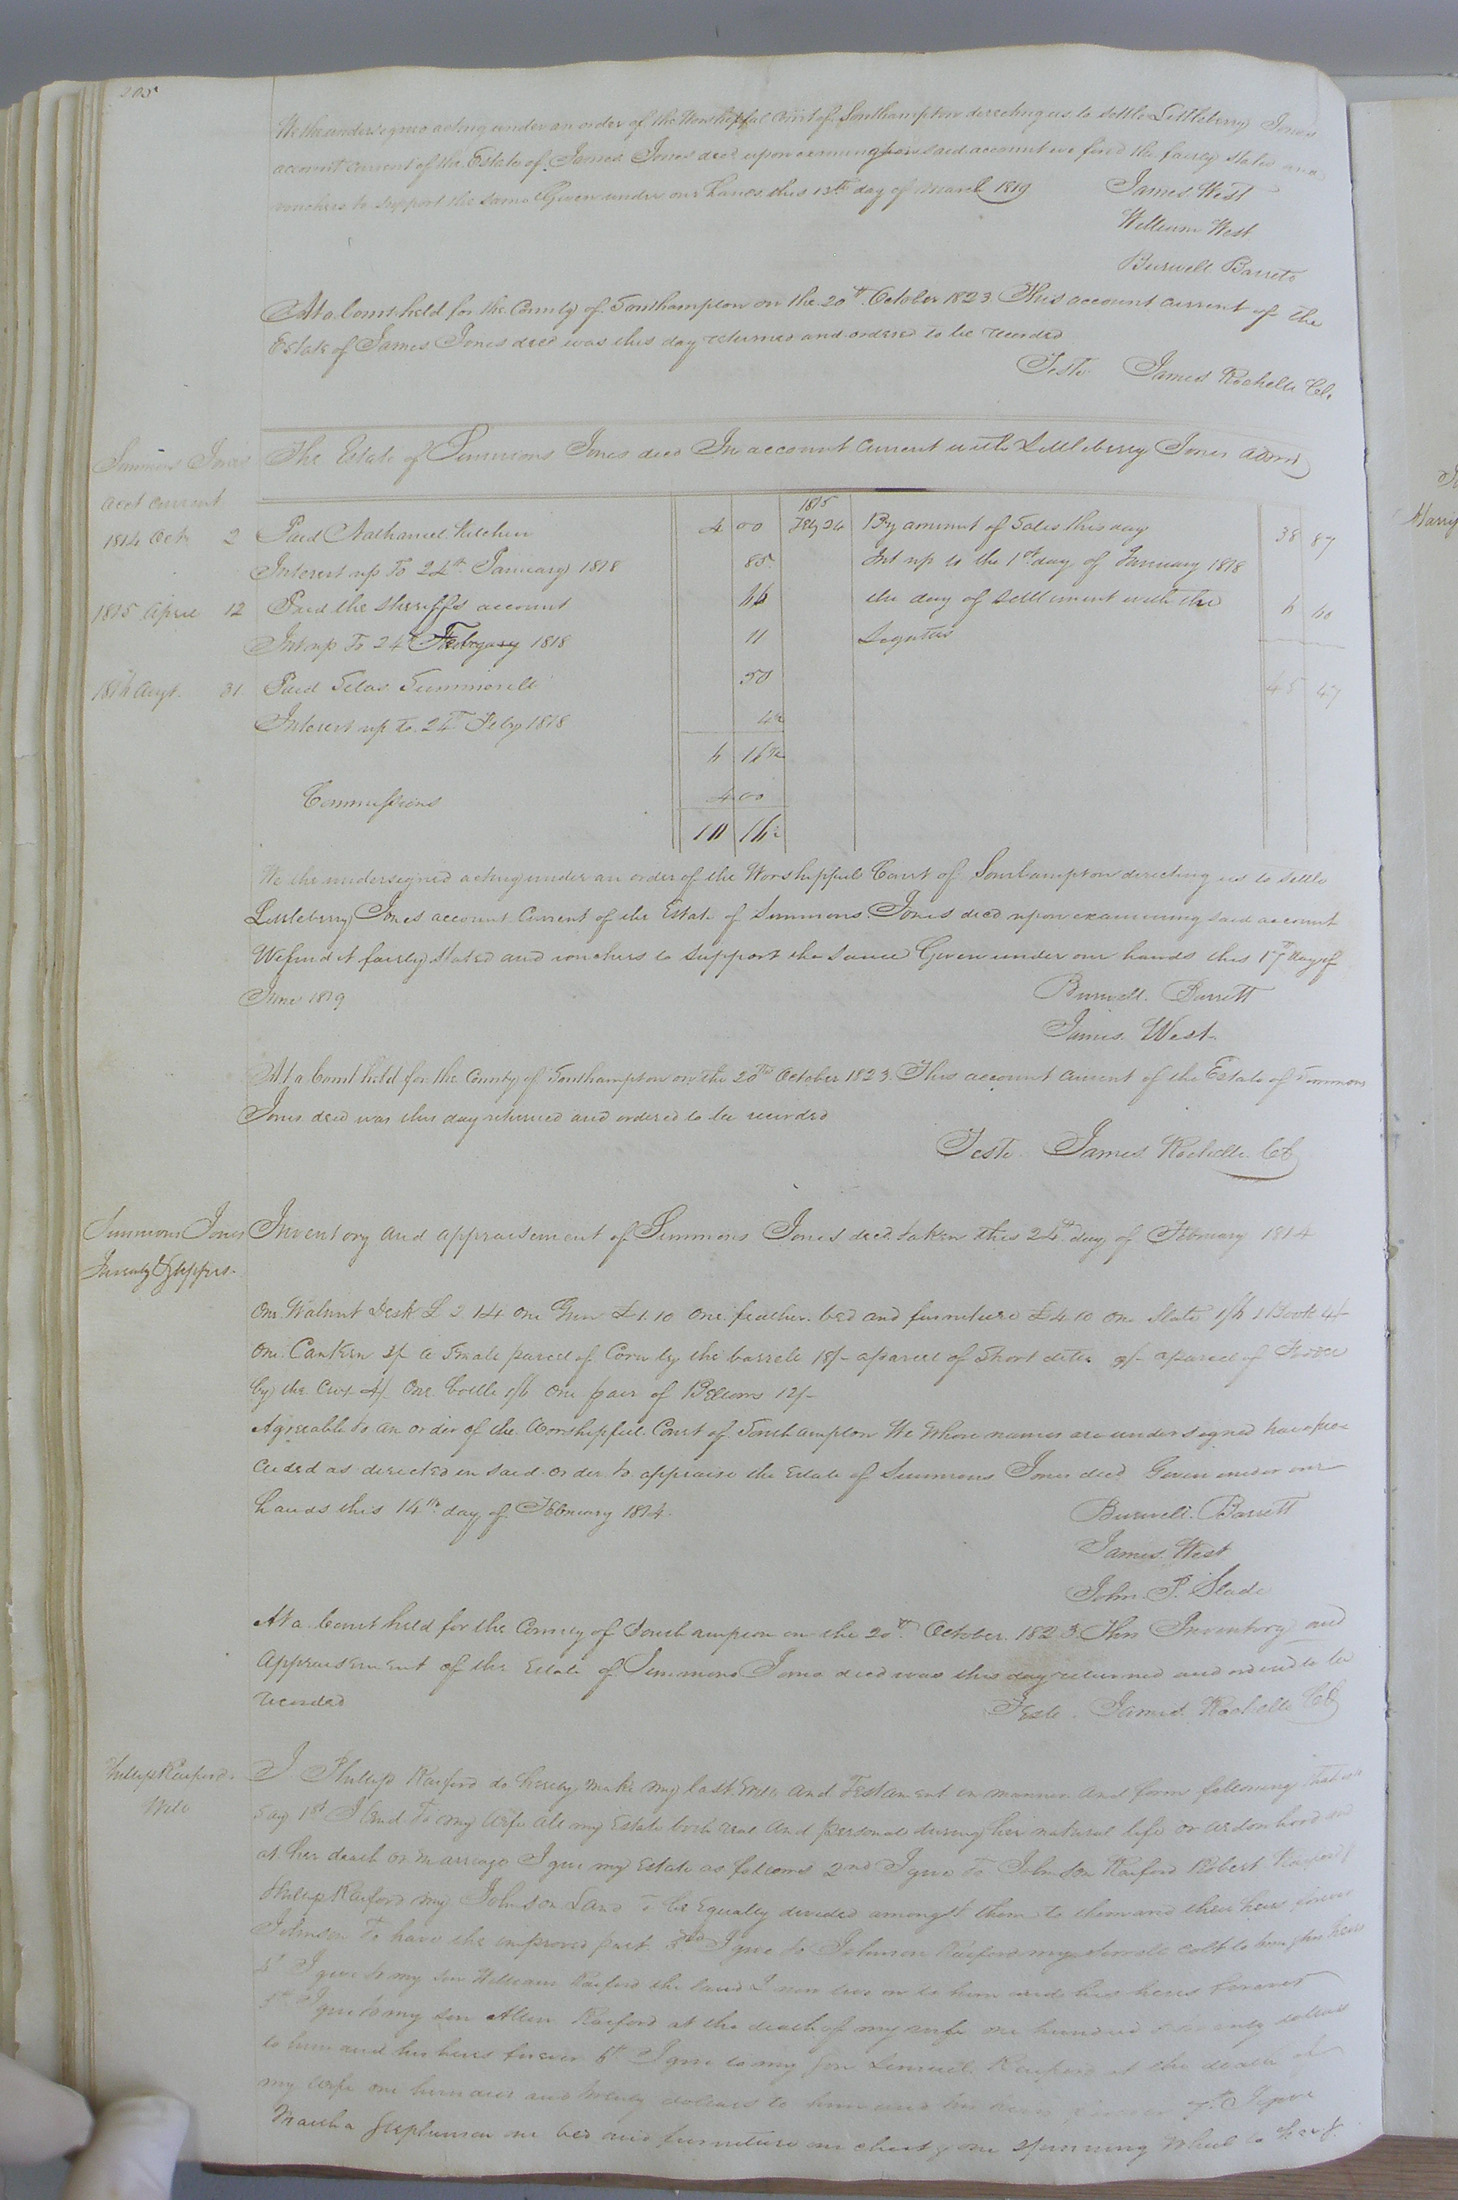 205
We the undersigned acting under an order of the Worshipful Court of Southampton directing us to settle Littleberry Jones
account current of the Estate of James Jones decd upon examining said account we find the fairly stated and
vouchers to support the same Given under our hands this 13th day of March 1819
James West
William West
Burwell Barrett
At a Court held for the County of Southampton on the 20th October 1823. This account current of the
Estate of James Jones decd was this day returned and ordered to be recorded
Teste James Rochelle Cl.
Simmons Jones
acct current
The Estate of Simmons Jones decd In account current with Littleberry Jones admr
1814 Oct 2 Paid Nathaniel Kitchen 4 00
Interest up To 24th January 1818 85
1815 April 12 Paid the sheriffs account 66
Int up To 24th February 1818 11
1816 Augt. 31 Paid Silas Summerell 50
Interest up to 24th Feby 1818 4½
6 16½
Commissions 4 00
10 16½
1815
Feby 24 By amount of Sales this day 38 87
Int up to the 1st day of January 1818
the day of settlement with the 6 60
Legatees
45 47
We the undersigned acting under an order of the Worshipfull Court of Southampton directing us to settle
Littleberry Jones account Current of the Estate of Simmons Jones decd upon examining said account
We find it fairly stated and vouchers to support the same Given under our hands this 17th day of
June 1819
Burwell. Barrett
James. West.
At a Court held for the County of Southampton on the 20th October 1823. This account current of the Estate of Simmons
Jones decd was this day returned and ordered to be recorded
Teste. James Rochelle. CC
Simmons Jones
Inventy & Apprs.
Inventory and appraisement of Simmons Jones decd taken this 24th day of February 1814
One Walnut Desk £ 2 14 one Gun £1.10 one feather bed and furniture £4 10 one Slate 1/6 1 Book 4/-
One Canteen 2/ a Small parcel of Corn by the barrele 18/- a parcel of Short ditto 9/- a parcel of Fodder
by the Cwt 4/ One bottle 1/6 one pair of Bellows 12/-
Agreeable to an order of the Worshipfull Court of Southampton We whose names are under signed have pro
ceeded as directed in said order to appraise the Estate of Simmons Jones decd Given under our
hands this 14th day of February 1814.
Burwell. Barrett
James. West
John. P. Slade
At a Court held for the County of Southampton on the 20th October. 1823. This Inventory and
Appraisement of the Estate of Simmons Jones decd was this day returned and ordered to be
recorded
Teste. James. Rochelle CC
Phillip Raiford.
Will
I Phillip Raiford do hereby make my last Will and Testament in manner and form following that is to
say 1st I lend to my wife all my Estate both real and personal during her natural life or widowhood and
at her death or marriage I give my Estate as follows 2nd I give to Johnson Raiford Robert Raiford &
Phillip Raiford my Johnson Land to be Equally divided amongst them to them and their heirs forever
Johnson To have the improved part. 3rd I give to Johnson Raiford my sorrell colt to him & his heirs
4th I give to my son William Raiford the land I now live on to him and his heirs forever
5th I give to my son Allen Raiford at the death of my wife one hundred & twenty dollars
to him and his heirs forever 6th I give to my son Lemuel Raiford at the death of
my wife one hundred and twenty dollars to him and his heirs forever 7th I give
Martha Stephenson one bed and furniture one chest & one spinning wheel to her &